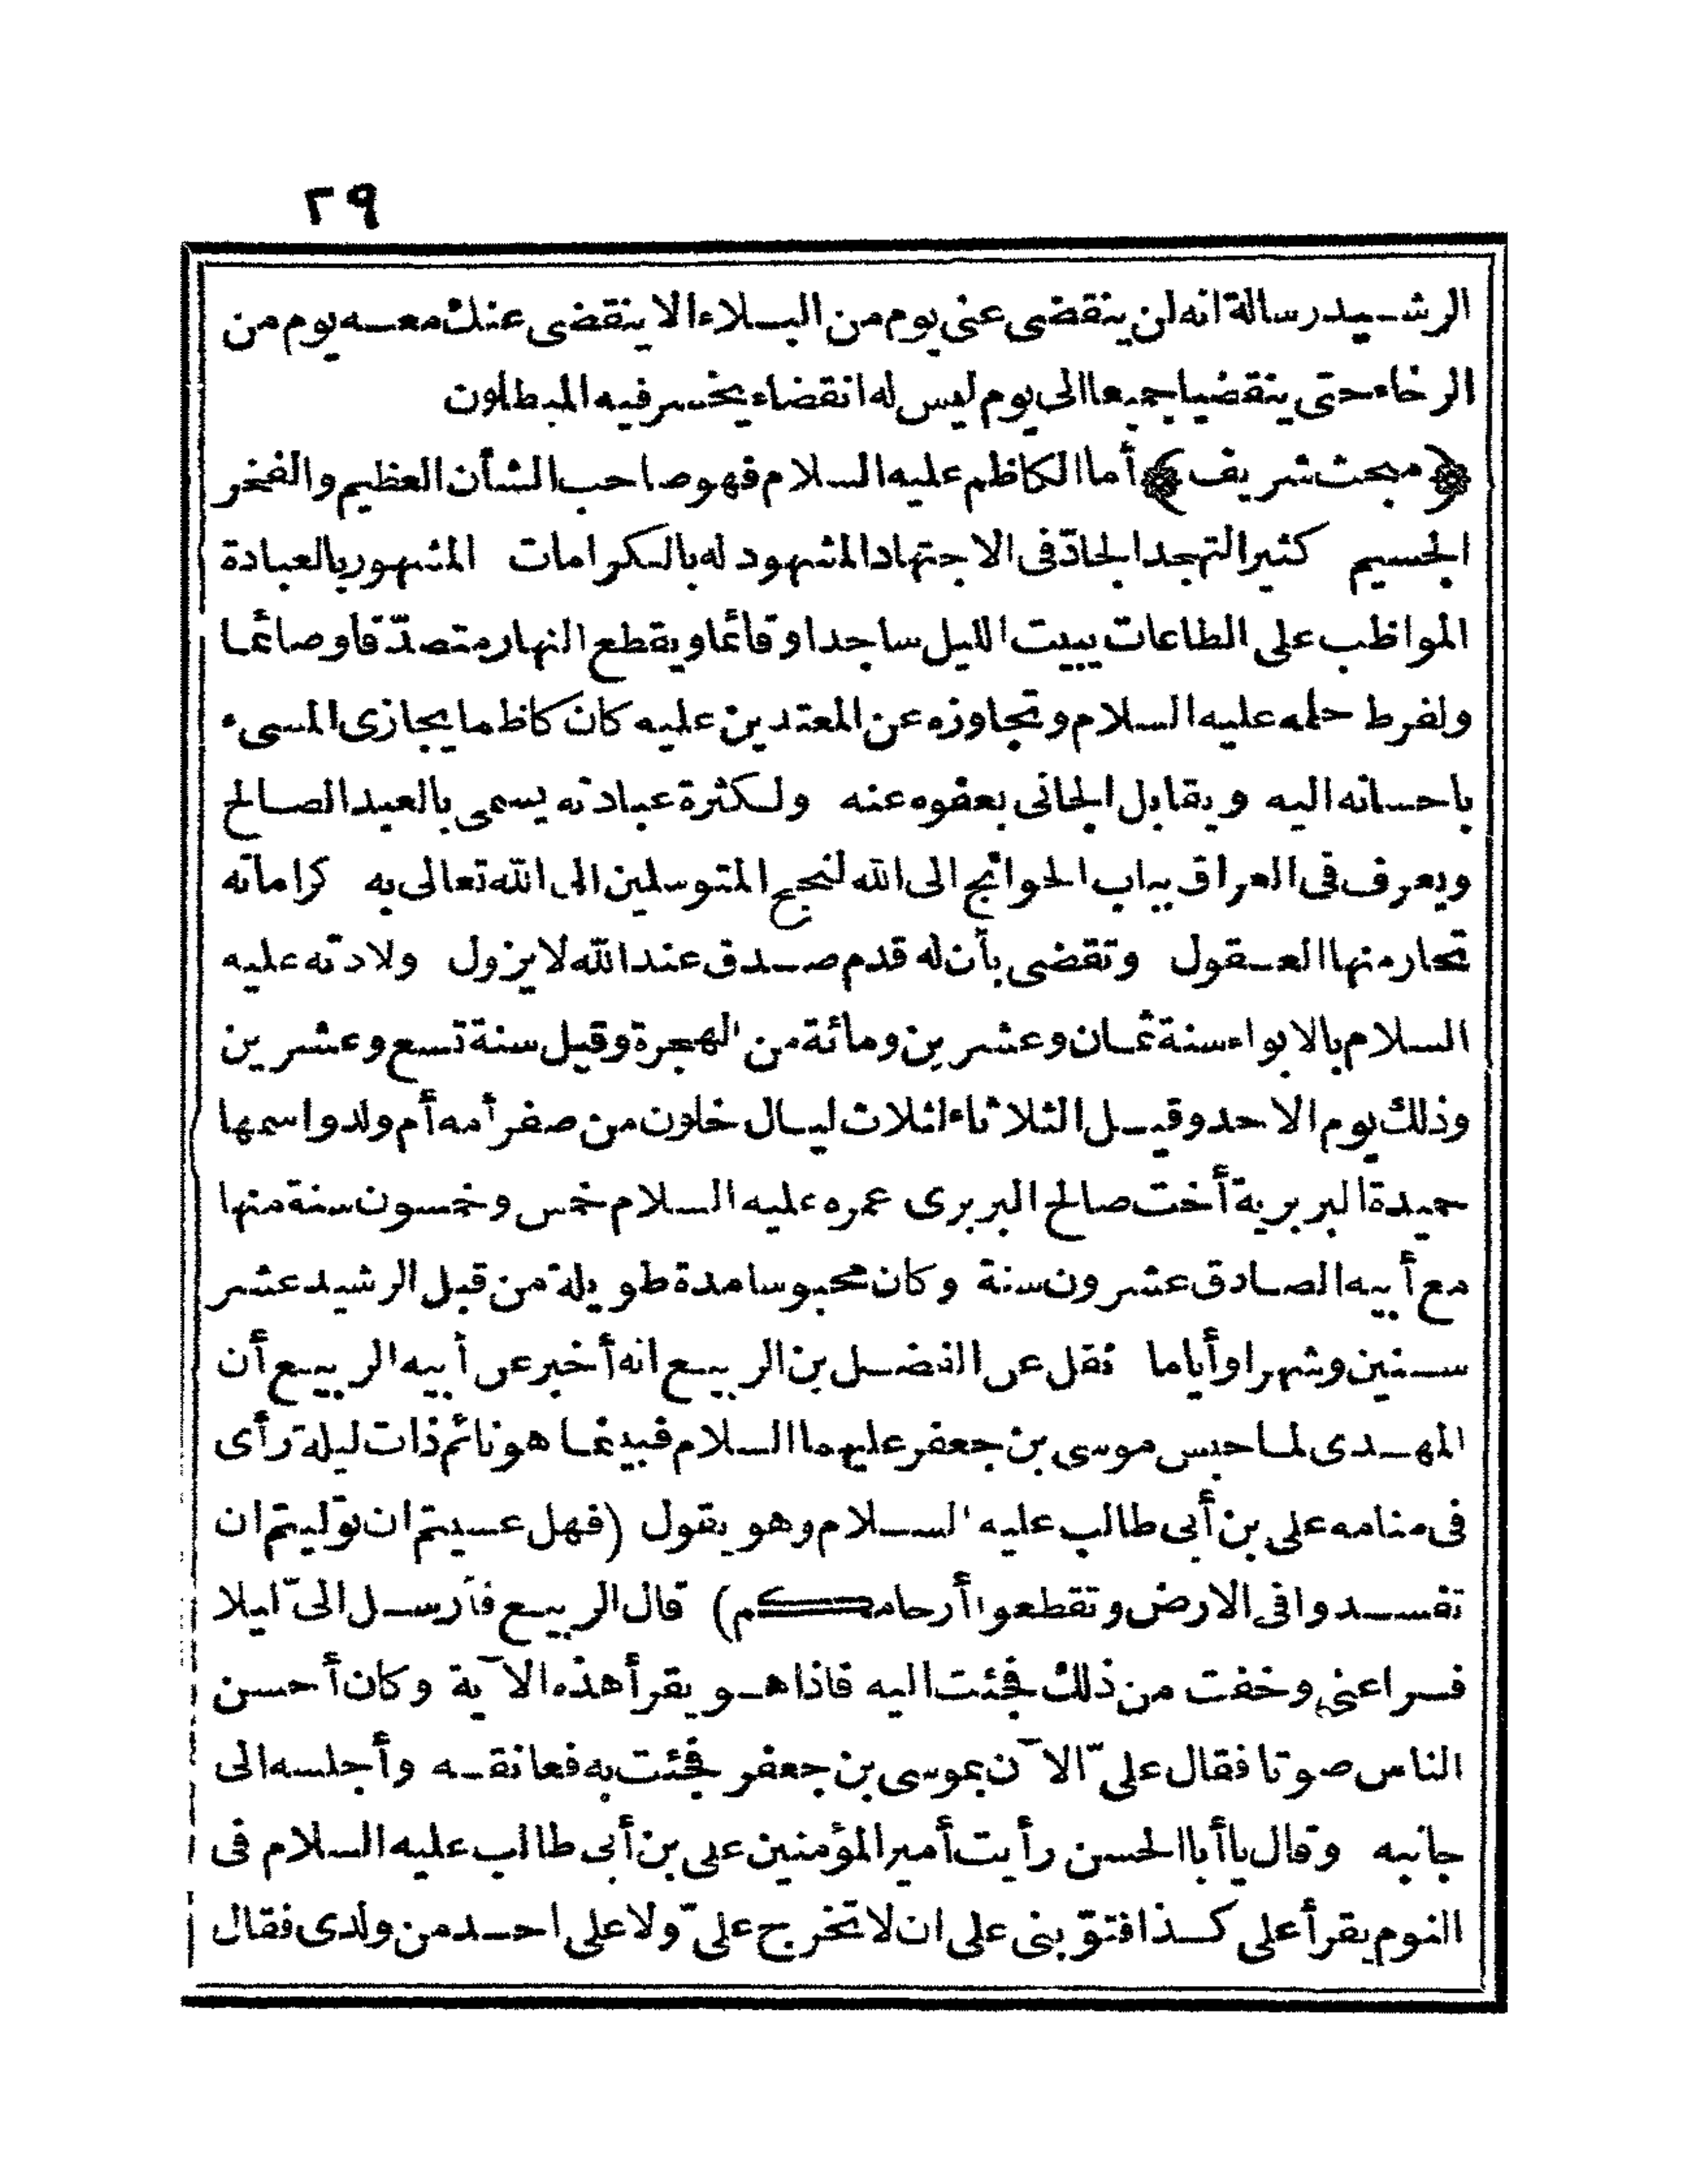 ٢٩
الرشيد رسالة انه لن ينقضى عنى يوم من البلاء الا ينقضى عنك معه يوم من
الرخاء حتى ينقضيا جميعا الى يوم ليس له انقضاء يخسر فيه المبطلون
﴿مبحث شريف﴾ أما الكاظم عليه السلام فهو صاحب الشأن العظيم والفخر
الجسيم كثير التهجد الجادّ فى الاجتهاد المشهود له بالكرامات المشهور بالعبادة
المواظب على الطاعات يبيت الليل ساجدا وقائما ويقطع النهار متصدّقا وصائما
ولفرط حلمه عليه السلام وتجاوزه عن المعتدين عليه كان كاظما يجازى المسىء
باحسانه اليه ويقابل الجانى بعفوه عنه ولكثرة عبادته يسمى بالعبد الصالح
ويعرف فى العراق بباب الحوائج الى الله لنجح المتوسلين الى الله تعالى به كراماته
تحار منها العقول وتقضى بأن له قدم صدق عند الله لا يزول ولادته عليه
السلام بالابواء سنة ثمان وعشرين ومائة من الهجرة وقيل سنة تسع وعشرين
وذلك يوم الاحد وقيل الثلاثاء لثلاث ليال خلون من صفر أمه أم ولد واسمها
حميدة البربرية أخت صالح البربرى عمره عليه السلام خمس وخمسون سنة منها
مع أبيه الصادق عشرون سنة وكان محبوسا مدة طويلة من قبل الرشيد عشر
سنين وشهرا وأياما نقل عن الفضل بن الربيع انه أخبر عن أبيه الربيع أن
المهدى لما حبس موسى بن جعفر عليهما السلام فبينما هو نائم ذات ليلة رأى
فى منامه على بن أبى طالب عليه السلام وهو يقول (فهل عسيتم ان توليتم ان
تفسدوا فى الارض وتقطعوا أرحامكم) قال الربيع فأرسل الىّ ليلا
فراعنى وخفت من ذلك فجئت اليه فاذا هو يقرأ هذه الآية وكان أحسن
الناس صوتا فقال علىّ الآن بموسى بن جعفر فجئت به فعانقه وأجلسه الى
جانبه وقال يا أبا الحسن رأيت أمير المؤمنين على بن أبى طالب عليه السلام فى
النوم يقرأ على كذا فتوّبنى على ان لا تخرج علىّ ولا على احد من ولدى فقال